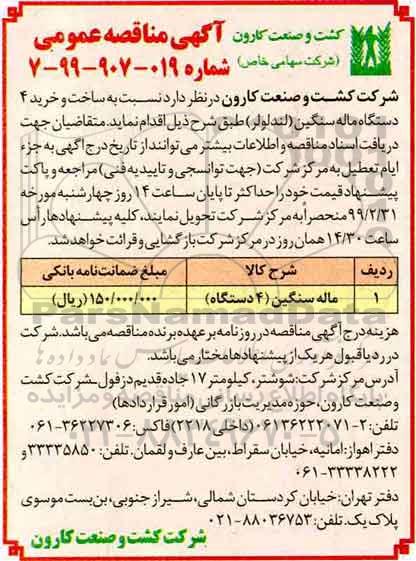 کشت و صنعت کارون
(شرکت سهامی خاص)
آگهی مناقصه عمومی
شماره ۰۱۹-۹۰۷-۹۹-۷
شرکت کشت و صنعت کارون در نظر دارد نسبت به ساخت و خرید ۴
دستگاه ماله سنگین (لندلولر) طبق شرح ذیل اقدام نماید. متقاضیان جهت
دریافت اسناد مناقصه و اطلاعات بیشتر می توانند از تاریخ درج آگهی به جزء
ایام تعطیل به مرکز شرکت (جهت توانسجی و تاییدیه فنی) مراجعه و پاکت
پیشنهاد قیمت خود را حداکثر تا پایان ساعت ۱۴ روز چهارشنبه مورخه
۹۹/۲/۳۱ منحصراً به مرکز شرکت تحویل نمایند، کلیه پیشنهادها، رأس
ساعت ۱۴/۳۰ همان روز در مرکز شرکت بازگشایی و قرائت خواهد شد.
ردیف شرح کالا مبلغ ضمانت نامه بانکی
۱ ماله سنگین (۴ دستگاه) ۱۵۰/۰۰۰/۰۰۰ (ریال)
هزینه درج آگهی مناقصه در روزنامه بر عهده برنده مناقصه می باشد. شرکت
در رد یا قبول هر یک از پیشنهادها مختار می باشد.
آدرس مرکز شرکت: شوشتر، کیلومتر ۱۷ جاده قدیم دزفول ـ شرکت کشت
و صنعت کارون، حوزه مدیریت بازرگانی (امور قراردادها)
تلفن: ۲-۰۶۱۳۶۲۲۲۰۷۱ (داخلی ۲۲۱۸) فاکس: ۳۶۲۲۷۳۰۶-۰۶۱
دفتر اهواز: امانیه، خیابان سقراط، بین عارف و لقمان. تلفن: ۳۳۳۳۵۸۵۰ و
۳۳۳۳۸۲۲۲-۰۶۱
دفتر تهران: خیابان کردستان شمالی، شیراز جنوبی، بن بست موسوی
پلاک یک. تلفن: ۸۸۰۳۶۷۵۳-۰۲۱
شرکت کشت و صنعت کارون
ParsNamadData
۰۲۱-۸۸۳۴۹۶۷۰-۵